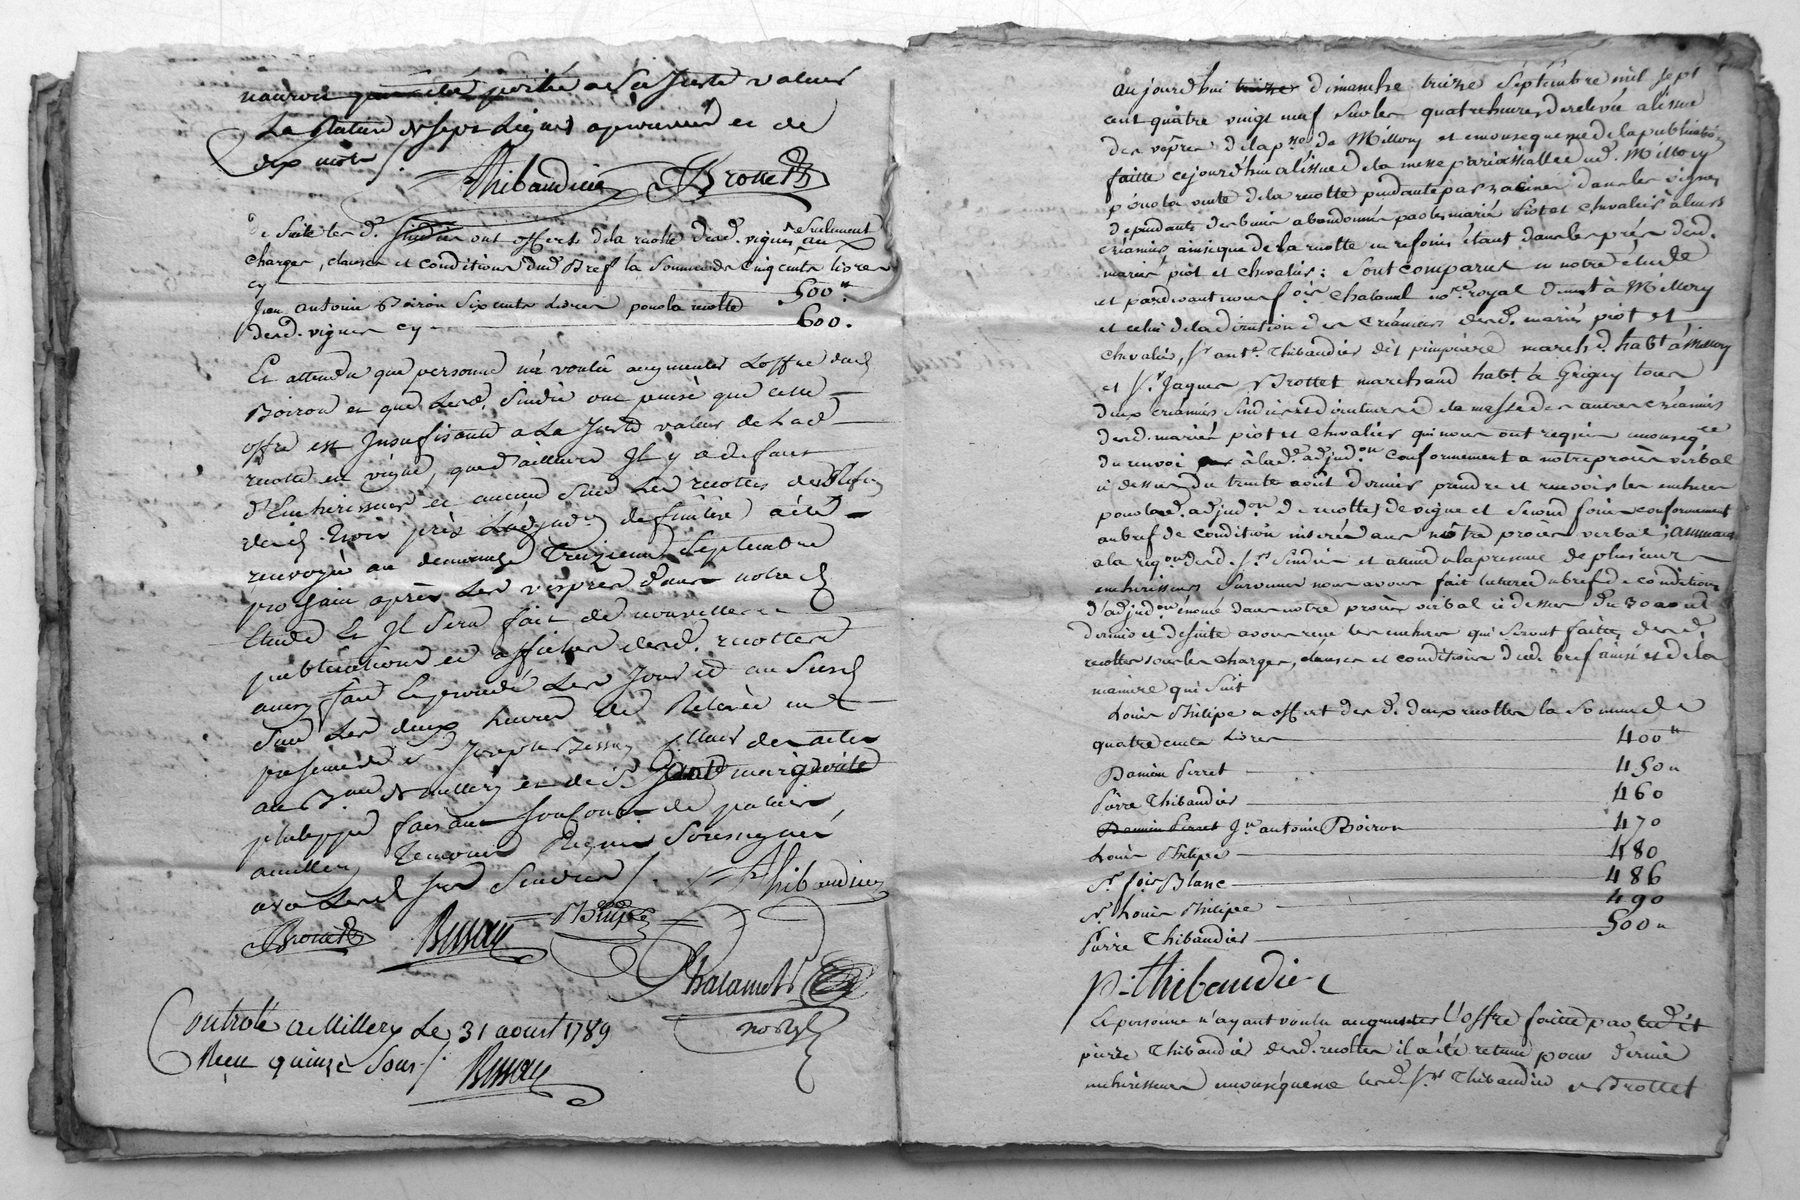 n'auroit pas été portée a Sa Juste valeur
La Rature de Sept Lignes approuvée et de
dix mots /.
Thibaudier JBrottet
De Suitte les d. Sindics ont offerts de la recolte desd. vignes Seulement aux
charges, clauses et conditions dud Bref la Somme de Cinq cents livres
cy 500"
Jean antoine Boiron Six cents Livres pour la recolte
desd. vignes cy 600.
Et attendu que personne n'a voulu augmenter L'offre dud
Boiron et que Lesd. Sindics ont pensé que cette
offre est Insufisante a La Juste valeur de Lad
recolte en vigne, que d'ailleurs Il y a defaut
d'Encherisseurs et aucun Sur Les recoltes des Refoin
desd. trois prés L'adjud.on definitive a été
renvoyée au dimanche Treizieme Septembre
prochain après Les vespres dans notre d
Etude Et Il Sera fait de nouvelles
publications et affiches desd. recoltes
ainsy fait et procedé Les Jour et an Susd
Sur Les deux heures de Relevée en
presence de Joseph Bessay Con.lleur des actes
au B.au de millery et de S.r marguerite
philippe faisant fonction de
a millery Temoins Requis Soussignés
avec Lesd Srs Sindics /. Thibaudier
JBrottet Bessay Philipe
Chalamel
no Ryl
Controlé a Millery Le 31 aoust 1789
Recu quinze Sous /. Bessay
aujourdhui treize dimanche treize Septembre mil Sept
cent quatre vingt neuf Sur les quatre heures de relevée a lissue
des vêpres de la p.sse de Millery et en consequence de la publication
faitte ce jourdhui a lissue de la messe parroissialle dud. Millery
pour la vente de la recolte pendante par racines dans les vignes
dependants des biens abandonnés par les mariés Piot et Chevalier à leurs
créanciers ainsi que de la recolte en refoins étant dans les prés desd.
mariés piot et chevalier: Sont comparus en notre étude
et pardevant nous f.ois Chalamel no.re royal d.meurt à Millery
et celui de la direction des Créanciers desd. mariés piot et
Chevalier, S.r ant.e Thibaudier dit pimpiere march.d habt à Millery
et S.r Jaques Brottet marchand habt. à Grigny tous
deux créanciers Sindics et directeurs de la masse des autres créanciers
desd. mariés piot et Chevalier qui nous ont requis en conseq.ce
du renvoi à lad.e adjud.on conformement a notre procès verbal
ci dessus du trente août dernier prendre et recevoir les encheres
pour lad. adjud.on de recoltes de vigne et Second foin conformement
au bref de condition inserée aux notre procès verbal;
a la requ.on desd. S.rs Sindics et attendu la presence de plusieurs
encherisseurs Survenus nous avons fait lecture du bref de conditions
d'adjud.on énoncé dans notre procès verbal ci dessus du 30 août
dernier et desuite avons recu les encheres qui Seront faittes desd.
recoltes sous les charges, clauses et conditions dud. bref ainsi et de la
maniere qui Suit
Louis Philipe a offert des d. deux recoltes la Somme de
quatre cents Livres 400"
Damien Perret 450"
Pierre Thibaudier 460
Damien Perret Jn antoine Boiron 470
Louis Philipe 480
Sr. fois Blanc 486
Sr. Louis Philipe 490
Pierre Thibaudier 500"
p. thibaudier
Et personne n'ayant voulu augmenter L'offre faitte par ledit
pierre Thibaudier desd. recoltes il a été retenu pour dernier
encherisseur en consequence lesd. S.rs Thibaudier et Brottet